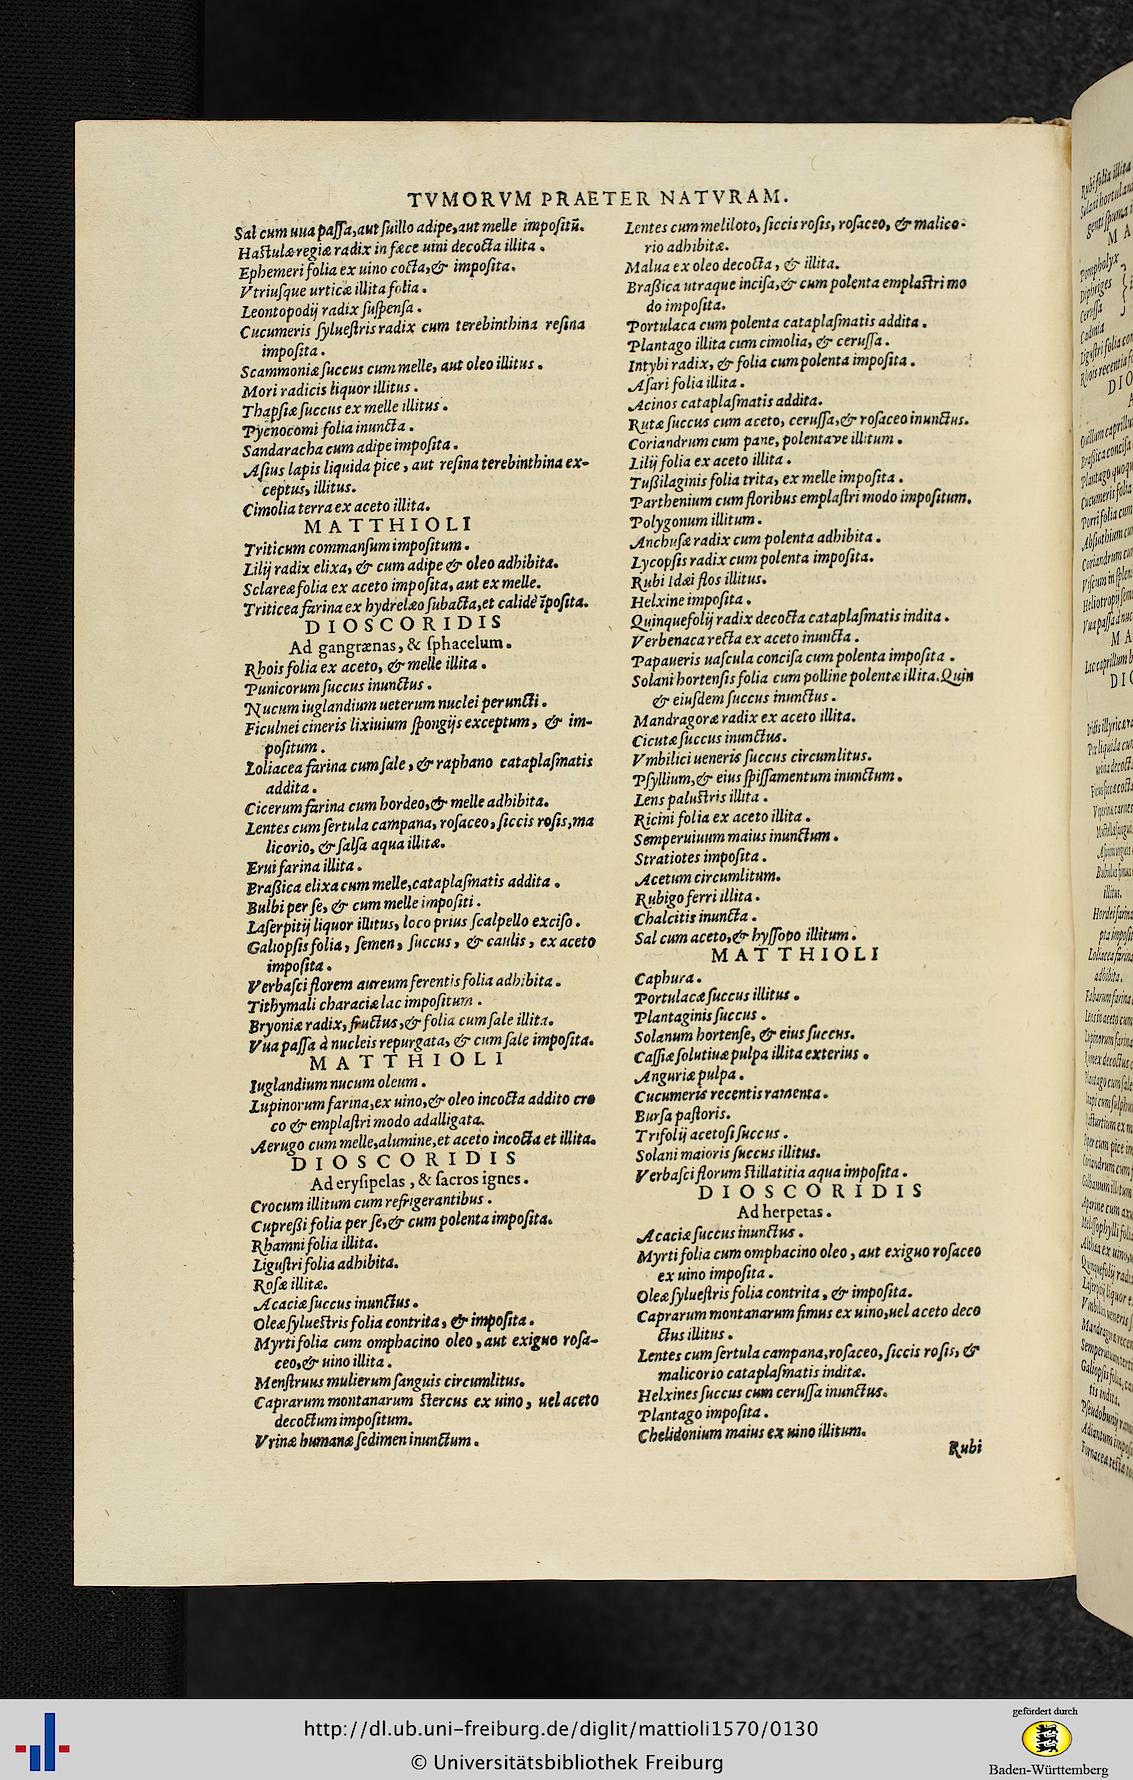 TVMORVM PRAETER NATVRAM.
Sal cum uua paſſa,aut ſuillo adipe,aut melle impoſitũ.
Haſtulæ regiæ radix in fæce uini decocta illita.
Ephemeri folia ex uino cocta,& impoſita.
Vtriuſque urticæ illita folia.
Leontopodij radix ſuſpenſa.
Cucumeris ſylueſtris radix cum terebinthina reſina
impoſita.
Scammoniæ ſuccus cum melle, aut oleo illitus.
Mori radicis liquor illitus.
Thapſiæ ſuccus ex melle illitus.
Pycnocomi folia inuncta.
Sandaracha cum adipe impoſita.
Aſius lapis liquida pice, aut reſina terebinthina ex-
ceptus, illitus.
Cimolia terra ex aceto illita.
MATTHIOLI
Triticum commanſum impoſitum.
Lilij radix elixa, & cum adipe & oleo adhibita.
Sclareæ folia ex aceto impoſita, aut ex melle.
Triticea farina ex hydrelæo ſubacta,et calidè ĩpoſita.
DIOSCORIDIS
Ad gangrænas, & ſphacelum.
Rhois folia ex aceto, & melle illita.
Punicorum ſuccus inunctus.
Nucum iuglandium ueterum nuclei peruncti.
Ficulnei cineris lixiuium ſpongijs exceptum, & im-
poſitum.
Loliacea farina cum ſale, & raphano cataplaſmatis
addita.
Cicerum farina cum hordeo,& melle adhibita.
Lentes cum ſertula campana, roſaceo, ſiccis roſis,ma
licorio, & ſalſa aqua illitæ.
Erui farina illita.
Braßica elixa cum melle,cataplaſmatis addita.
Bulbi per ſe, & cum melle impoſiti.
Laſerpitij liquor illitus, loco prius ſcalpello exciſo.
Galiopſis folia, ſemen, ſuccus, & caulis, ex aceto
impoſita.
Verbaſci florem aureum ferentis folia adhibita.
Tithymali characiæ lac impoſitum.
Bryoniæ radix, fructus,& folia cum ſale illita.
Vua paſſa à nucleis repurgata, & cum ſale impoſita.
MATTHIOLI
Iuglandium nucum oleum.
Lupinorum farina,ex uino,& oleo incocta addito cro
co & emplaſtri modo adalligata.
Aerugo cum melle,alumine,et aceto incocta et illita.
DIOSCORIDIS
Ad eryſipelas, & ſacros ignes.
Crocum illitum cum refrigerantibus.
Cupreßi folia per ſe,& cum polenta impoſita.
Rhamni folia illita.
Liguſtri folia adhibita.
Roſæ illitæ.
Acaciæ ſuccus inunctus.
Oleæ ſylueſtris folia contrita, & impoſita.
Myrti folia cum omphacino oleo, aut exiguo roſa-
ceo,& uino illita.
Menſtruus mulierum ſanguis circumlitus.
Caprarum montanarum ſtercus ex uino, uel aceto
decoctum impoſitum.
Vrinæ humanæ ſedimen inunctum.
Lentes cum meliloto, ſiccis roſis, roſaceo, & malico-
rio adhibitæ.
Malua ex oleo decocta, & illita.
Braßica utraque inciſa,& cum polenta emplaſtri mo
do impoſita.
Portulaca cum polenta cataplaſmatis addita.
Plantago illita cum cimolia, & ceruſſa.
Intybi radix, & folia cum polenta impoſita.
Aſari folia illita.
Acinos cataplaſmatis addita.
Rutæ ſuccus cum aceto, ceruſſa,& roſaceo inunctus.
Coriandrum cum pane, polentaue illitum.
Lilij folia ex aceto illita.
Tußilaginis folia trita, ex melle impoſita.
Parthenium cum floribus emplaſtri modo impoſitum.
Polygonum illitum.
Anchuſæ radix cum polenta adhibita.
Lycopſis radix cum polenta impoſita.
Rubi Idæi flos illitus.
Helxine impoſita.
Quinquefolij radix decocta cataplaſmatis indita.
Verbenaca recta ex aceto inuncta.
Papaueris uaſcula conciſa cum polenta impoſita.
Solani hortenſis folia cum polline polentæ illita.Quin
& eiuſdem ſuccus inunctus.
Mandragoræ radix ex aceto illita.
Cicutæ ſuccus inunctus.
Vmbilici ueneris ſuccus circumlitus.
Pſyllium,& eius ſpiſſamentum inunctum.
Lens paluſtris illita.
Ricini folia ex aceto illita.
Semperuiuum maius inunctum.
Stratiotes impoſita.
Acetum circumlitum.
Rubigo ferri illita.
Chalcitis inuncta.
Sal cum aceto,& hyſſopo illitum.
MATTHIOLI
Caphura.
Portulacæ ſuccus illitus.
Plantaginis ſuccus.
Solanum hortenſe, & eius ſuccus.
Caſſiæ ſolutiuæ pulpa illita exterius.
Anguriæ pulpa.
Cucumeris recentis ramenta.
Burſa paſtoris.
Trifolij acetoſi ſuccus.
Solani maioris ſuccus illitus.
Verbaſci florum ſtillatitia aqua impoſita.
DIOSCORIDIS
Ad herpetas.
Acaciæ ſuccus inunctus.
Myrti folia cum omphacino oleo, aut exiguo roſaceo
ex uino impoſita.
Oleæ ſylueſtris folia contrita, & impoſita.
Caprarum montanarum fimus ex uino,uel aceto deco
ctus illitus.
Lentes cum ſertula campana,roſaceo, ſiccis roſis, &
malicorio cataplaſmatis inditæ.
Helxines ſuccus cum ceruſſa inunctus.
Plantago impoſita.
Chelidonium maius ex uino illitum.
Rubi
http://dl.ub.uni-freiburg.de/diglit/mattioli1570/0130
© Universitätsbibliothek Freiburg
gefördert durch
Baden-Württemberg